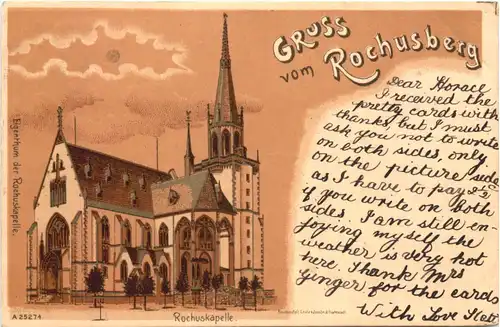 Gruss
vom Rochusberg
Dear Horace
I received the
pretty cards with
thanks, but I must
ask you not to write
on both sides, only
on the picture side
as I have to pay
if you write on both
sides. I am still en-
joying myself the
weather is very hot
here. Thank Mrs
Ginger for the cards
With Love Kate
Eigenthum der Rochuskapelle.
A 25274.
Rochuskapelle.